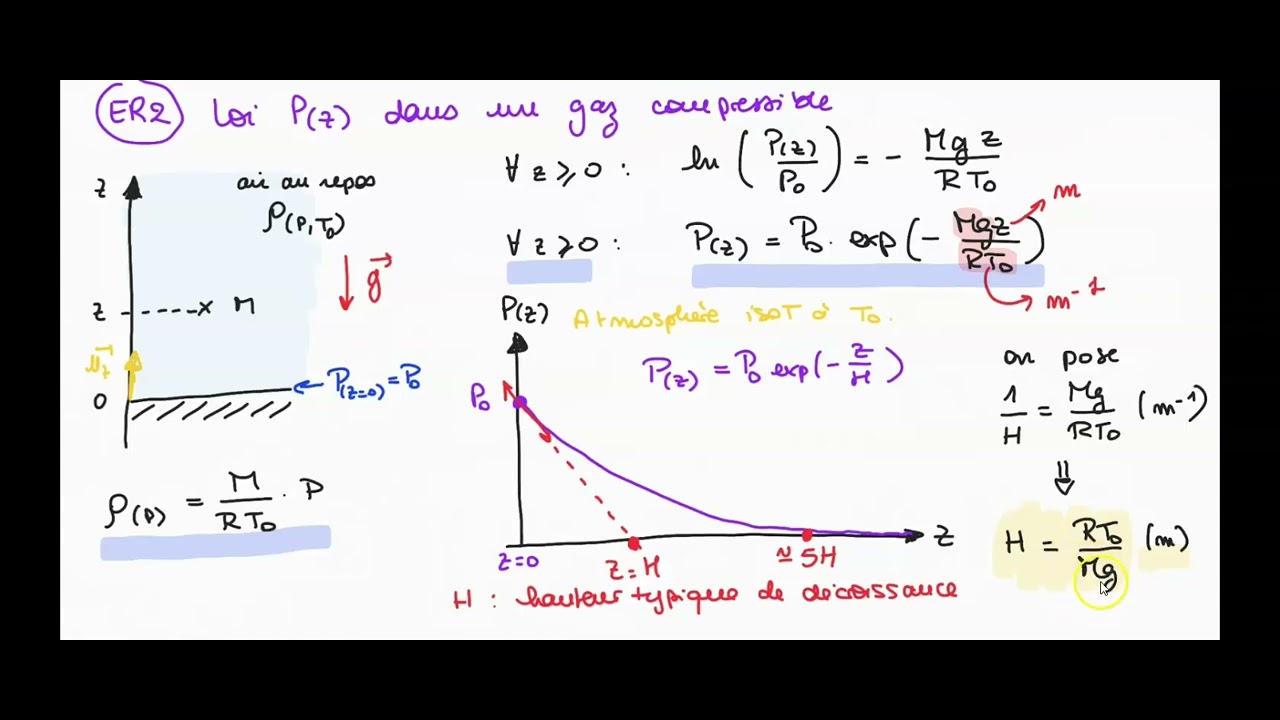 ER2 Loi P(z) dans un gaz compressible
z
air au repos
ρ(P,T₀)
g⃗
z M
u⃗z
0
P(z=0) = P₀
ρ(P) = M/RT₀ · P
∀ z ⩾ 0 : ln (P(z)/P₀) = - Mgz/RT₀
m
∀ z ⩾ 0 : P(z) = P₀ . exp(- Mgz/RT₀)
m⁻¹
P(z) Atmosphère isoT à T₀.
P(z) = P₀ exp(- z/H)
P₀
z=0
z = H
≈ 5H
z
H : hauteur typique de décroissance
on pose
1/H = Mg/RT₀ (m⁻¹)
⇓
H = RT₀/Mg (m)